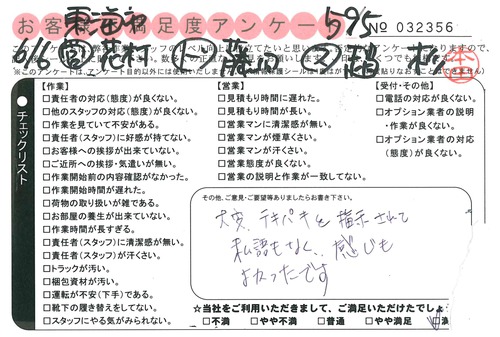 お客様満足度アンケート
東京都
595
No 032356
6/6
このアンケートは、弊社
※このアンケートは、アンケート目的以外には使用いたしません
チェックリスト
【作業】
□責任者の対応(態度)が良くない。
□他のスタッフの対応(態度)が良くない。
□作業を見ていて不安がある。
□責任者(スタッフ)に好感が持てない。
□お客様への挨拶が出来ていない。
□ご近所への挨拶・気遣いが無い。
□作業開始前の内容確認がなかった。
□作業開始時間が遅れた。
□荷物の取り扱いが雑である。
□お部屋の養生が出来ていない。
□作業時間が長すぎる。
□責任者(スタッフ)に清潔感が無い。
□責任者(スタッフ)が汗くさい。
□トラックが汚い。
□梱包資材が汚い。
□運転が不安(下手)である。
□靴下の履き替えをしてない。
□スタッフにやる気がみられない。
【営業】
□見積もり時間に遅れた。
□見積もり時間が長い。
□営業マンに清潔感が無い。
□営業マンが煙草くさい。
□営業マンが汗くさい。
□営業態度が良くない。
□営業の説明と作業が一致してない。
【受付・その他】
□電話の対応が良くない。
□オプション業者の説明
・作業が良くない。
□オプション業者の対応
(態度)が良くない。
その他、ご意見・ご要望等ありましたらお書き下さい。
大変、テキパキと指示されて
私語もなく、感じも
よかったです
☆当社をご利用いただきまして、ご満足いただけたでしょ
□不満 □やや不満 □普通 □やや満足